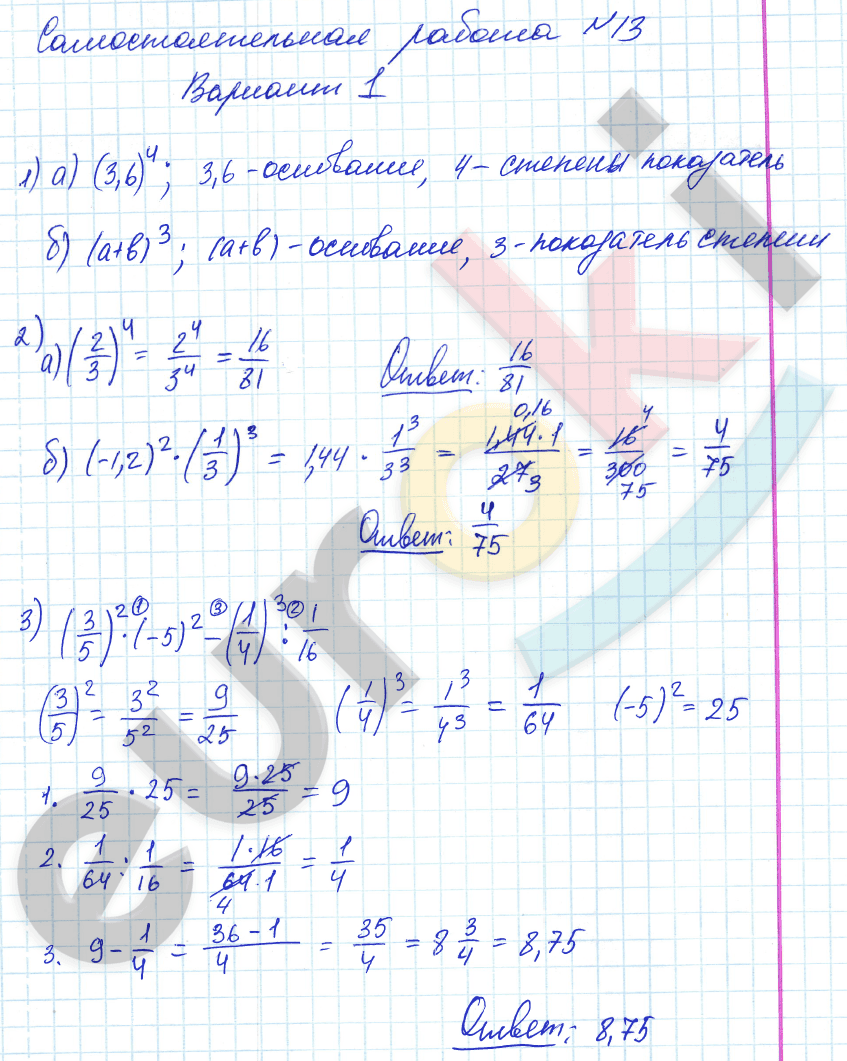 Самостоятельная работа №13
Вариант 1
1) а) (3,6)^4; 3,6 - основание, 4 - степены показатель
б) (a+b)^3; (a+b) - основание, 3 - показатель степени
2) а) (2/3)^4 = 2^4/3^4 = 16/81 Ответ: 16/81
б) (-1,2)^2 · (1/3)^3 = 1,44 · 1^3/3^3 = 0,16 1,44·1/27 3 = 16 4/300 75 = 4/75
Ответ: 4/75
3) (3/5)^2 ① · (-5)^2 ③ - (1/4)^3 ② : 1/16
(3/5)^2 = 3^2/5^2 = 9/25 (1/4)^3 = 1^3/4^3 = 1/64 (-5)^2 = 25
1. 9/25 · 25 = 9·25/25 = 9
2. 1/64 : 1/16 = 1·16/64·1 4 = 1/4
3. 9 - 1/4 = 36-1/4 = 35/4 = 8 3/4 = 8,75
Ответ: 8,75
euroki